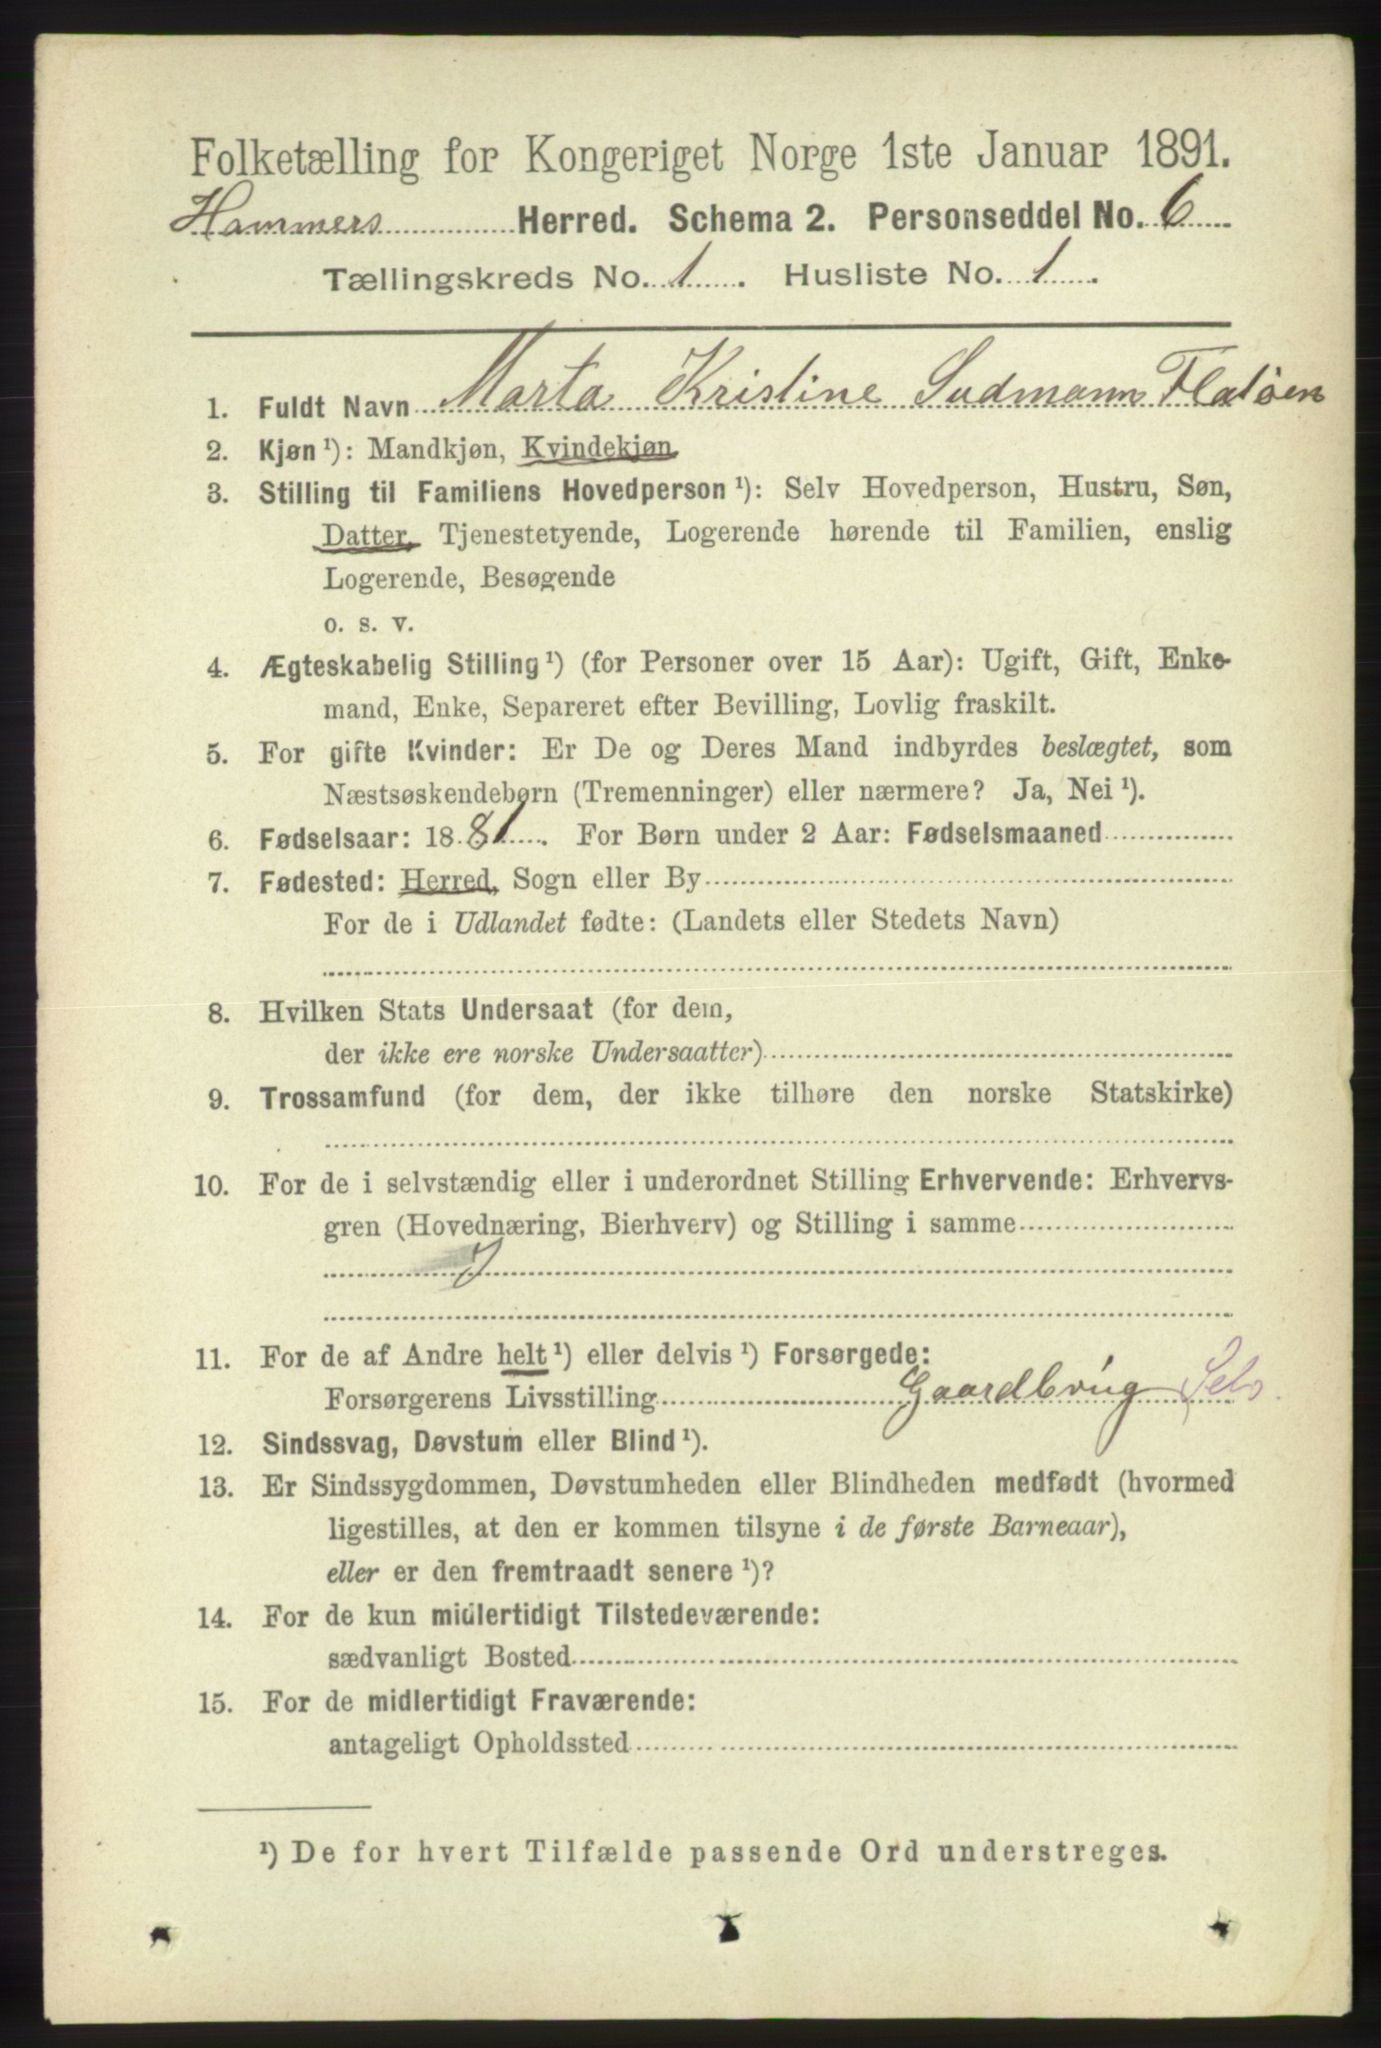 Folketælling for Kongeriget Norge 1ste Januar 1891.
Hammers Herred. Schema 2. Personseddel No. 6
Tællingskreds No. 1. Husliste No. 1.
1. Fuldt Navn Marta Kristine Sudmann Flatöen
2. Kjøn ¹): Mandkjøn, Kvindekjøn
3. Stilling til Familiens Hovedperson ¹): Selv Hovedperson, Hustru, Søn,
Datter, Tjenestetyende, Logerende hørende til Familien, enslig
Logerende, Besøgende
o. s. v.
4. Ægteskabelig Stilling ¹) (for Personer over 15 Aar): Ugift, Gift, Enke-
mand, Enke, Separeret efter Bevilling, Lovlig fraskilt.
5. For gifte Kvinder: Er De og Deres Mand indbyrdes beslægtet, som
Næstsøskendebørn (Tremenninger) eller nærmere? Ja, Nei ¹).
6. Fødselsaar: 1881. For Børn under 2 Aar: Fødselsmaaned
7. Fødested: Herred, Sogn eller By
For de i Udlandet fødte: (Landets eller Stedets Navn)
8. Hvilken Stats Undersaat (for dem,
der ikke ere norske Undersaatter)
9. Trossamfund (for dem, der ikke tilhøre den norske Statskirke)
10. For de i selvstændig eller i underordnet Stilling Erhvervende: Erhvervs-
gren (Hovednæring, Bierhverv) og Stilling i samme
11. For de af Andre helt ¹) eller delvis ¹) Forsørgede:
Forsørgerens Livsstilling Gaardbrug Selv.
12. Sindssvag, Døvstum eller Blind ¹).
13. Er Sindssygdommen, Døvstumheden eller Blindheden medfødt (hvormed
ligestilles, at den er kommen tilsyne i de første Barneaar),
eller er den fremtraadt senere ¹)?
14. For de kun midlertidigt Tilstedeværende:
sædvanligt Bosted
15. For de midlertidigt Fraværende:
antageligt Opholdssted
¹) De for hvert Tilfælde passende Ord understreges.